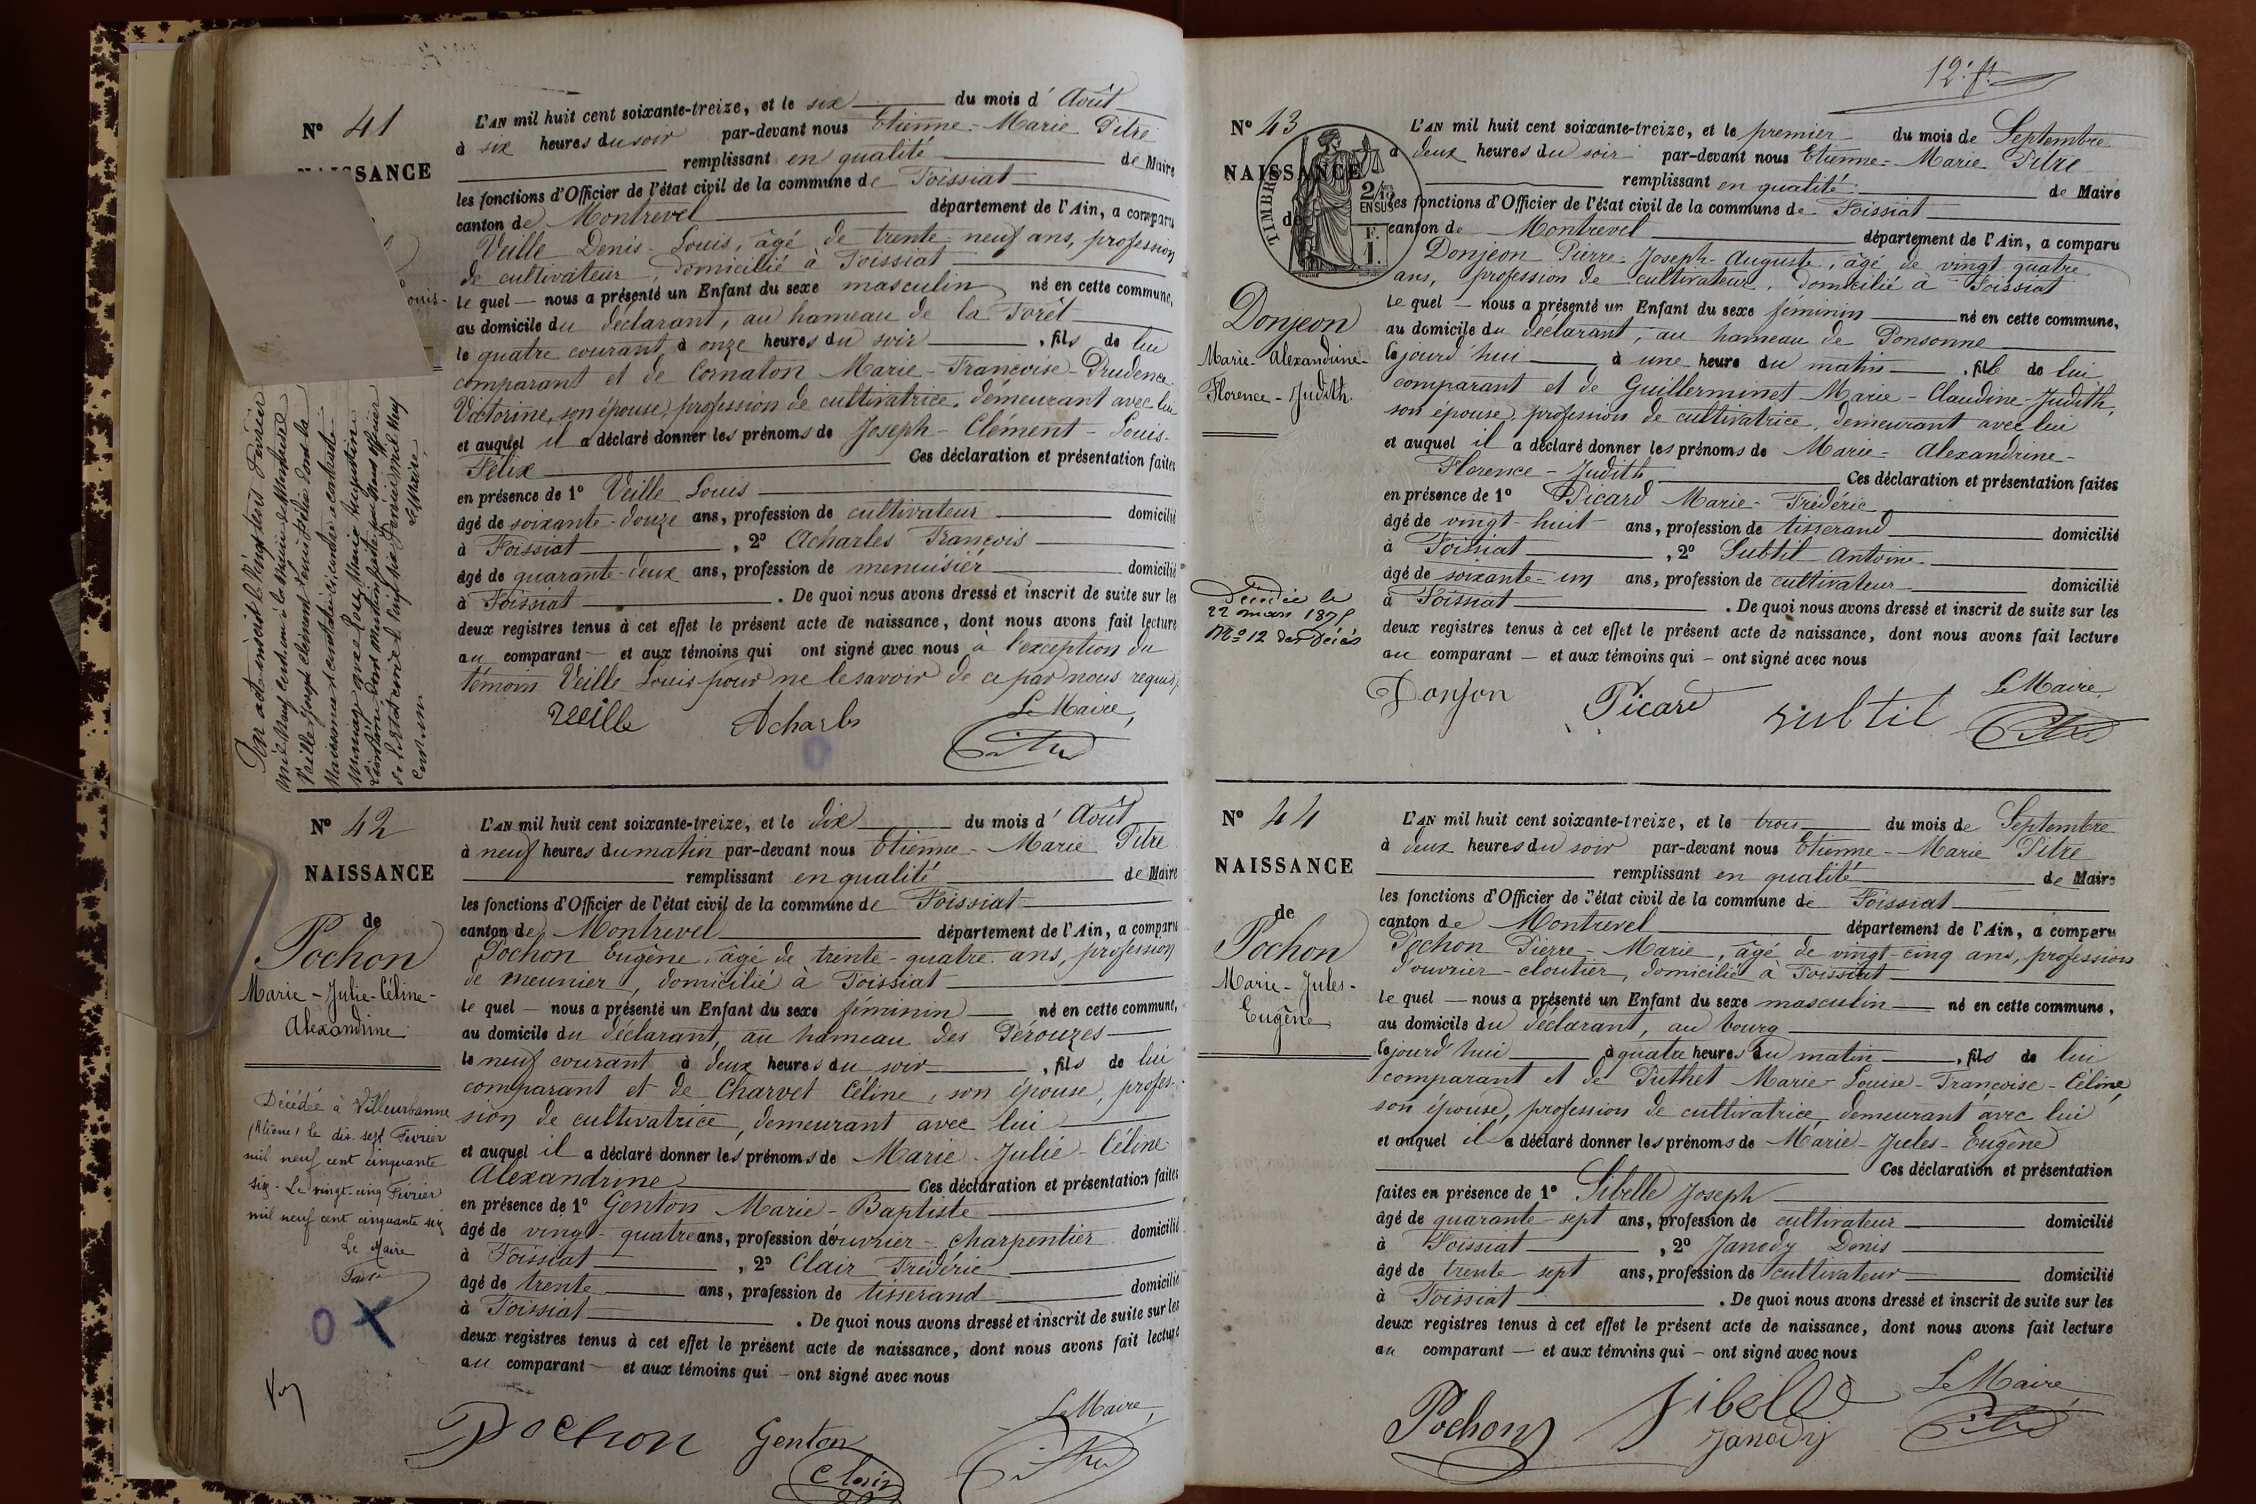 N° 41
NAISSANCE
ouis-
L'AN mil huit cent soixante-treize, et le six du mois d' Août
à six heures du soir par-devant nous Etienne-Marie Pitre
remplissant en qualité de Maire
les fonctions d'Officier de l'état civil de la commune de Foissiat
canton de Montrevel département de l'Ain, a comparu
Veille Denis-Louis, âgé de trente-neuf ans, profession
de cultivateur, domicilié à Foissiat
le quel nous a présenté un Enfant du sexe masculin né en cette commune,
au domicile du déclarant, au hameau de la Forêt
le quatre courant à onze heures du soir, fils de lui
comparant et de Cornaton Marie-Françoise-Prudence
Victorine, son épouse, profession de cultivatrice, demeurant avec lui
et auquel il a déclaré donner les prénoms de Joseph-Clément-Louis-
Félix Ces déclaration et présentation faites
en présence de 1° Veille Louis
âgé de soixante-douze ans, profession de cultivateur domicilié
à Foissiat, 2° Acharles François
âgé de quarante-deux ans, profession de menuisier domicilié
à Foissiat. De quoi nous avons dressé et inscrit de suite sur les
deux registres tenus à cet effet le présent acte de naissance, dont nous avons fait lecture
au comparant et aux témoins qui ont signé avec nous à l'exception du
témoin Veille Louis pour ne le savoir de ce par nous requis.
Veille Acharles Le Maire,
Pitre
Par acte inscrit le vingt trois Février
mil neuf cent un à la mairie de
Veille Joseph Clément Louis Félix dont la
naissance est constatée ci-contre a contracté
mariage avec Marie Augustine
Mention faite par Nous officier
de l'état civil le vingt six Février mil neuf
cent un Le Maire,
N° 42
NAISSANCE
de
Pochon
Marie-Julie-Céline-
Alexandrine
Décédée à Villeurbanne
(Rhône) le dix-sept Février
mil neuf cent cinquante
six - Le vingt-cinq Février
mil neuf cent cinquante six
Le Maire
L'AN mil huit cent soixante-treize, et le dix du mois d' Août
à neuf heures du matin par-devant nous Etienne-Marie Pitre
remplissant en qualité de Maire
les fonctions d'Officier de l'état civil de la commune de Foissiat
canton de Montrevel département de l'Ain, a comparu
Pochon Eugène, âgé de trente-quatre ans, profession
de meunier, domicilié à Foissiat
le quel nous a présenté un Enfant du sexe féminin né en cette commune,
au domicile du déclarant, au hameau des Pérouzes
le neuf courant à deux heures du soir, fils de lui
comparant et de Charvet Céline, son épouse, profes-
sion de cultivatrice, demeurant avec lui
et auquel il a déclaré donner les prénoms de Marie-Julie-Céline
Alexandrine Ces déclaration et présentation faites
en présence de 1° Genton Marie-Baptiste
âgé de vingt-quatre ans, profession d'ouvrier-charpentier domicilié
à Foissiat, 2° Clair Frédéric
âgé de trente ans, profession de tisserand domicilié
à Foissiat. De quoi nous avons dressé et inscrit de suite sur les
deux registres tenus à cet effet le présent acte de naissance, dont nous avons fait lecture
au comparant et aux témoins qui ont signé avec nous
Le Maire,
Pochon Genton Pitre
Clair
12e ft
N° 43
NAISSANCE
de
TIMBRE
2/10 EN SUS
F. 1.
Donjeon
Marie-Alexandrine-
Florence-Judith
Décédée le
22 mars 1875
N° 12 des Décès
L'AN mil huit cent soixante-treize, et le premier du mois de Septembre
à deux heures du soir par-devant nous Etienne-Marie Pitre
remplissant en qualité de Maire
les fonctions d'Officier de l'état civil de la commune de Foissiat
canton de Montrevel département de l'Ain, a comparu
Donjeon Pierre-Joseph-Auguste, âgé de vingt-quatre
ans, profession de cultivateur, domicilié à Foissiat
le quel nous a présenté un Enfant du sexe féminin né en cette commune,
au domicile du déclarant, au hameau de Ponsonne
lejourd'hui à une heure du matin, fille de lui
comparant et de Guillerminet Marie-Claudine-Judith,
son épouse, profession de cultivatrice, demeurant avec lui
et auquel il a déclaré donner les prénoms de Marie-Alexandrine-
Florence-Judith Ces déclaration et présentation faites
en présence de 1° Picard Marie-Frédéric
âgé de vingt-huit ans, profession de tisserand domicilié
à Foissiat, 2° Subtil Antoine
âgé de soixante-un ans, profession de cultivateur domicilié
à Foissiat. De quoi nous avons dressé et inscrit de suite sur les
deux registres tenus à cet effet le présent acte de naissance, dont nous avons fait lecture
au comparant et aux témoins qui ont signé avec nous
Le Maire,
Donjon Picard Subtil Pitre
N° 44
NAISSANCE
de
Pochon
Marie-Jules-
Eugène
L'AN mil huit cent soixante-treize, et le trois du mois de Septembre
à deux heures du soir par-devant nous Etienne-Marie Pitre
remplissant en qualité de Maire
les fonctions d'Officier de l'état civil de la commune de Foissiat
canton de Montrevel département de l'Ain, a comparu
Pochon Pierre-Marie, âgé de vingt-cinq ans, profession
d'ouvrier-cloutier, domicilié à Foissiat
le quel nous a présenté un Enfant du sexe masculin né en cette commune,
au domicile du déclarant, au bourg
lejourd'hui à quatre heures du matin, fils de lui
comparant et de Puthet Marie-Louise-Françoise-Céline,
son épouse, profession de cultivatrice, demeurant avec lui
et auquel il a déclaré donner les prénoms de Marie-Jules-Eugène
Ces déclaration et présentation
faites en présence de 1° Sibelle Joseph
âgé de quarante-sept ans, profession de cultivateur domicilié
à Foissiat, 2° Janody Denis
âgé de trente-sept ans, profession de cultivateur domicilié
à Foissiat. De quoi nous avons dressé et inscrit de suite sur les
deux registres tenus à cet effet le présent acte de naissance, dont nous avons fait lecture
au comparant et aux témoins qui ont signé avec nous
Le Maire,
Pochon Sibelle Pitre
Janody